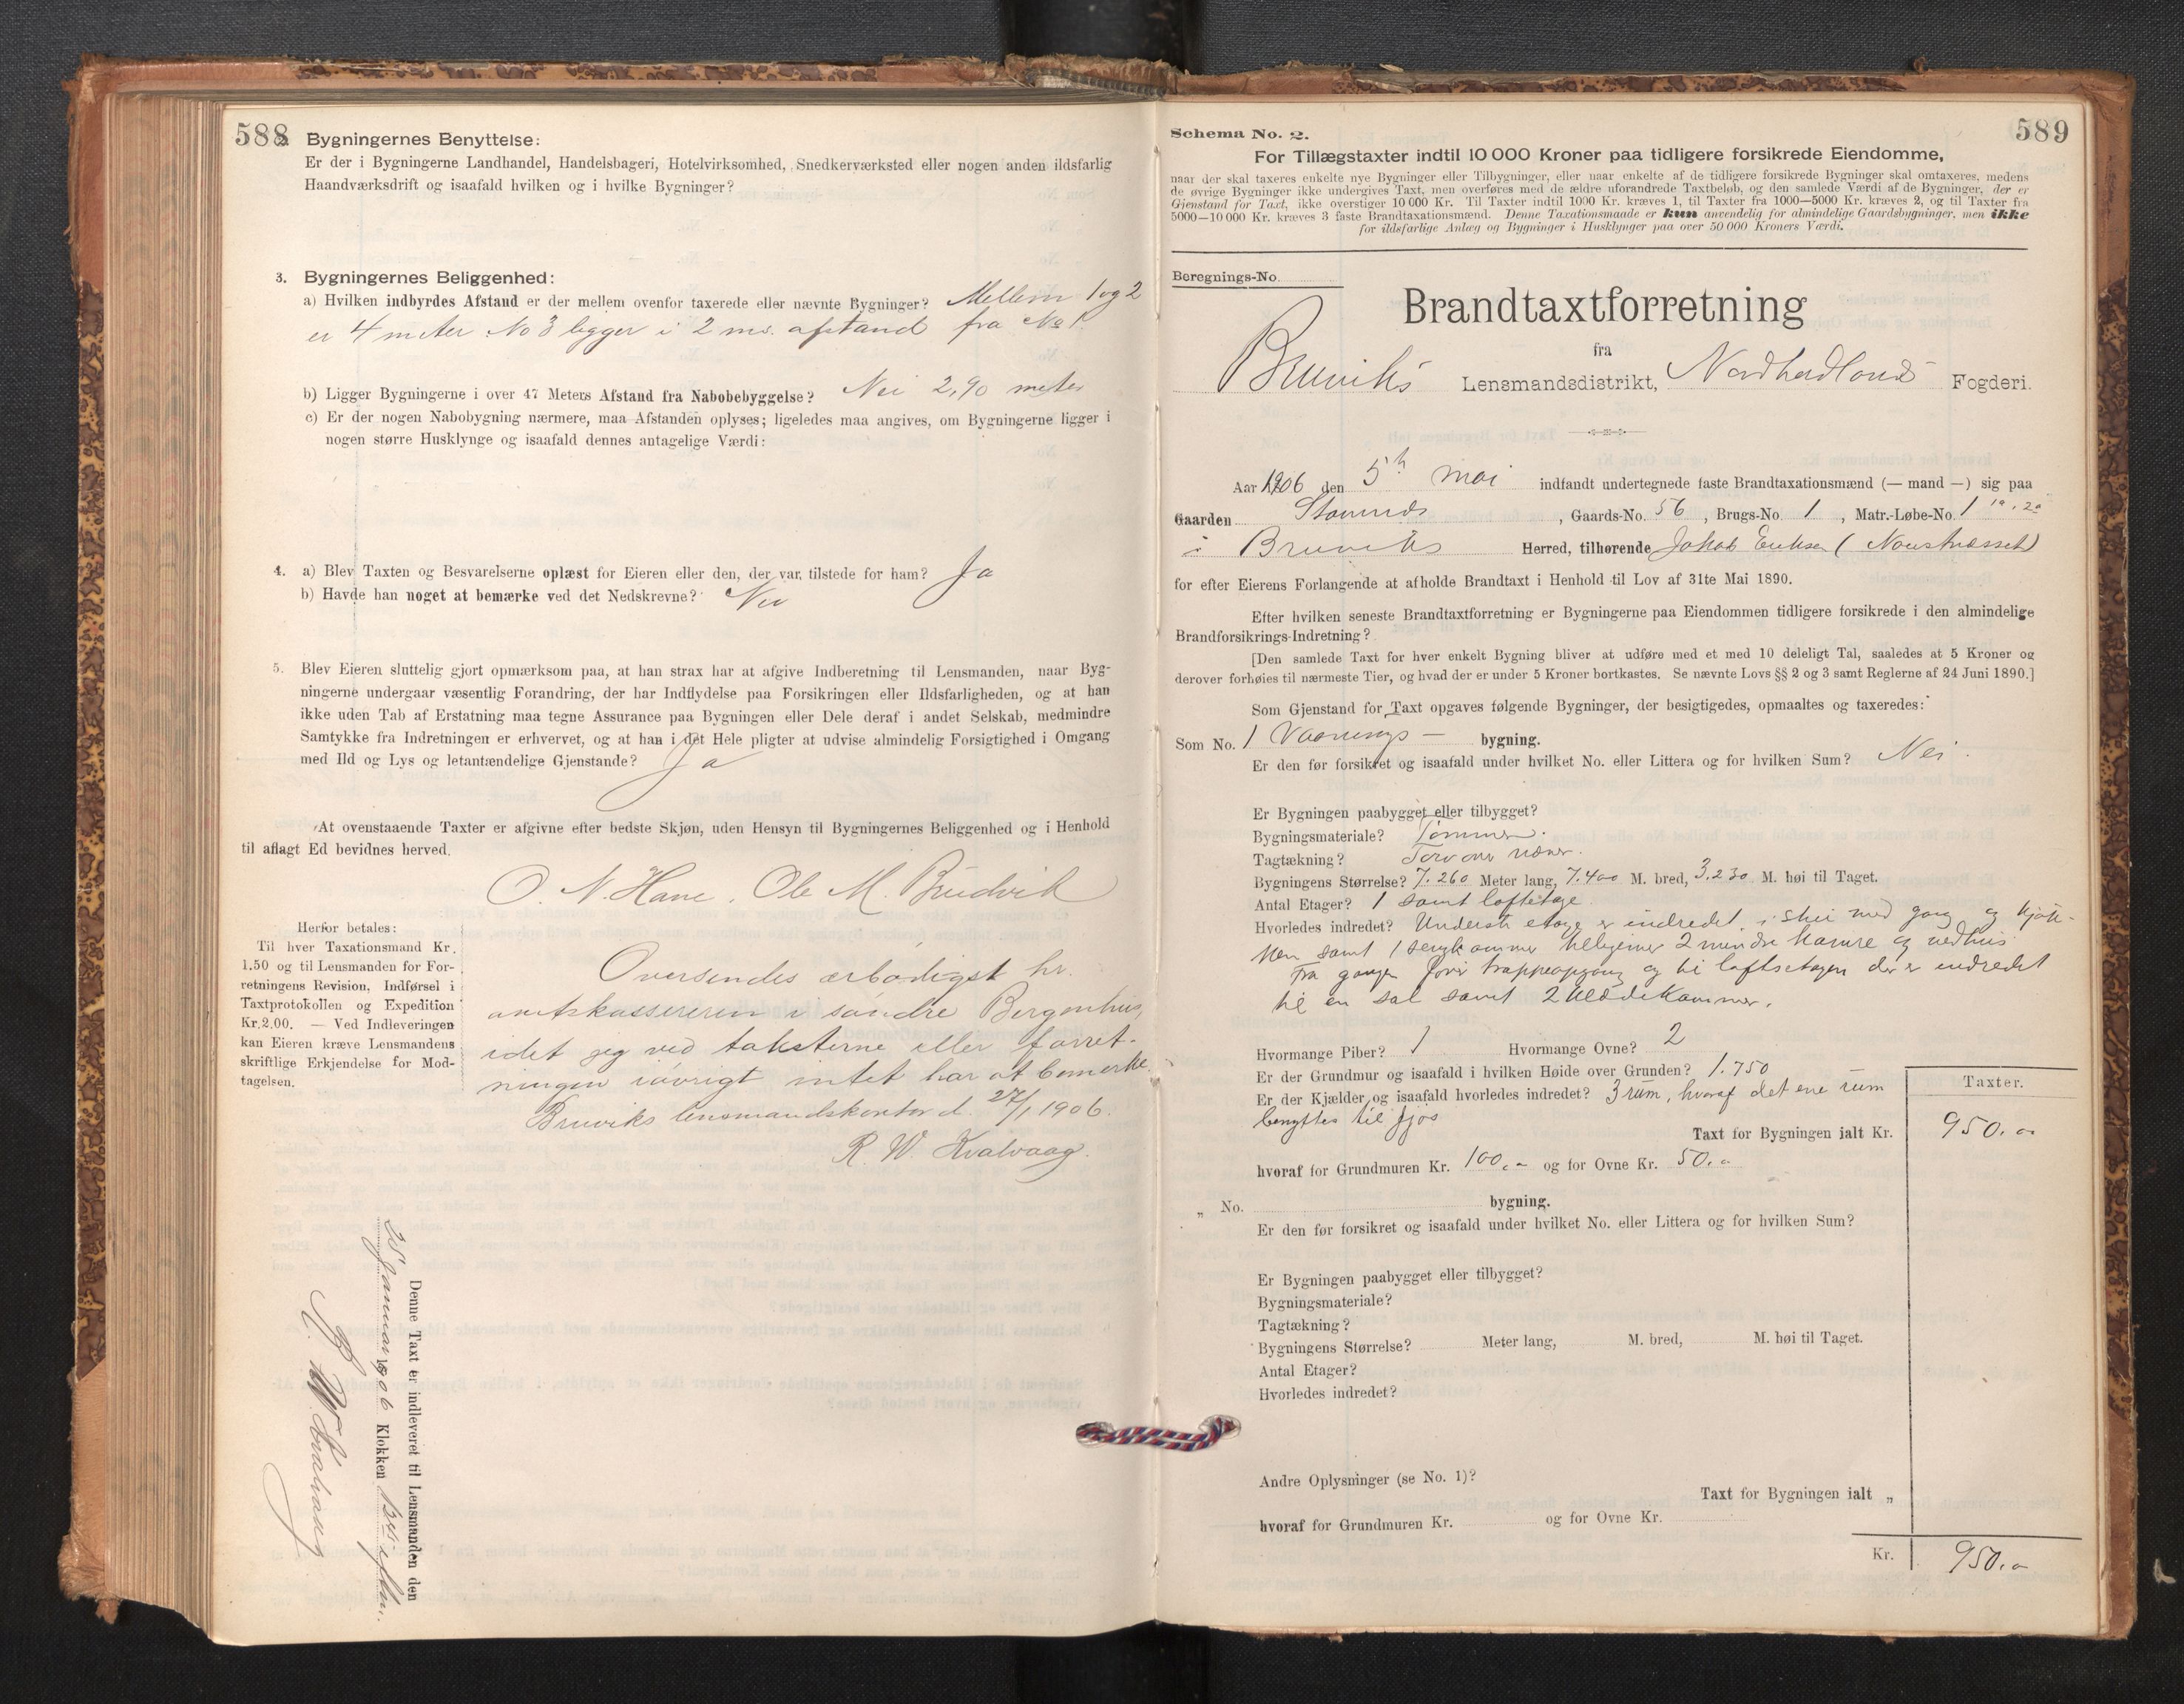 588
2. Bygningernes Benyttelse:
Er der i Bygningerne Landhandel, Handelsbageri, Hotelvirksomhed, Snedkerværksted eller nogen anden ildsfarlig
Haandværksdrift og isaafald hvilken og i hvilke Bygninger?
3. Bygningernes Beliggenhed:
a) Hvilken indbyrdes Afstand er der mellem ovenfor taxerede eller nævnte Bygninger? Mellem 1 og 2
er 4 meter No 3 ligger i 2 ms. afstand fra No 1.
b) Ligger Bygningerne i over 47 Meters Afstand fra Nabobebyggelse? Nei 2,90 meter
c) Er der nogen Nabobygning nærmere, maa Afstanden oplyses; ligeledes maa angives, om Bygningerne ligger i
nogen større Husklynge og isaafald dennes antagelige Værdi:
4. a) Blev Taxten og Besvarelserne oplæst for Eieren eller den, der var tilstede for ham? Ja
b) Havde han noget at bemærke ved det Nedskrevne? Nei
5. Blev Eieren sluttelig gjort opmærksom paa, at han strax har at afgive Indberetning til Lensmanden, naar Byg-
ningerne undergaar væsentlig Forandring, der har Indflydelse paa Forsikringen eller Ildsfarligheden, og at han
ikke uden Tab af Erstatning maa tegne Assurance paa Bygningen eller Dele deraf i andet Selskab, medmindre
Samtykke fra Indretningen er erhvervet, og at han i det Hele pligter at udvise almindelig Forsigtighed i Omgang
med Ild og Lys og letantændelige Gjenstande? Ja
At ovenstaaende Taxter er afgivne efter bedste Skjøn, uden Hensyn til Bygningernes Beliggenhed og i Henhold
til aflagt Ed bevidnes herved.
O. N. Hane, Ole M. Brudvik
Herfor betales:
Til hver Taxationsmand Kr.
1.50 og til Lensmanden for For-
retningens Revision, Indførsel i
Taxtprotokollen og Expedition
Kr. 2.00. — Ved Indleveringen
kan Eieren kræve Lensmandens
skriftlige Erkjendelse for Mod-
tagelsen.
Oversendes ærbødigst hr.
amtskassereren i søndre Bergenhus,
idet jeg ved taksterne eller forret-
ningen iøvrigt intet har at bemerke.
Bruviks lensmandskontor d. 27/1 1906.
R. W. Kvalvaag.
Denne Taxt er indleveret til Lensmanden den
25 Januar 1906 Klokken
R. W. Kvalvaag
589
Schema No. 2.
For Tillægstaxter indtil 10 000 Kroner paa tidligere forsikrede Eiendomme,
naar der skal taxeres enkelte nye Bygninger eller Tilbygninger, eller naar enkelte af de tidligere forsikrede Bygninger skal omtaxeres, medens
de øvrige Bygninger ikke undergives Taxt, men overføres med de ældre uforandrede Taxtbeløb, og den samlede Værdi af de Bygninger, der er
Gjenstand for Taxt, ikke overstiger 10 000 Kr. Til Taxter indtil 1000 Kr. kræves 1, til Taxter fra 1000—5000 Kr. kræves 2, og til Taxter fra
5000—10 000 Kr. kræves 3 faste Brandtaxationsmænd. Denne Taxationsmaade er kun anvendelig for almindelige Gaardsbygninger, men ikke
for ildsfarlige Anlæg og Bygninger i Husklynger paa over 50 000 Kroners Værdi.
Beregnings-No.
Brandtaxtforretning
fra
Bruviks Lensmandsdistrikt, Nordhordlands Fogderi.
Aar 1906 den 5h mai indfandt undertegnede faste Brandtaxationsmænd (— mand —) sig paa
Gaarden Stamnes, Gaards-No. 56, Brugs-No. 1, Matr.-Løbe-No. 1
i Bruviks Herred, tilhørende Jakob Eriksen (Naustnesset)
for efter Eierens Forlangende at afholde Brandtaxt i Henhold til Lov af 31te Mai 1890.
Efter hvilken seneste Brandtaxtforretning er Bygningerne paa Eiendommen tidligere forsikrede i den almindelige
Brandforsikrings-Indretning?
[Den samlede Taxt for hver enkelt Bygning bliver at udføre med et med 10 deleligt Tal, saaledes at 5 Kroner og
derover forhøies til nærmeste Tier, og hvad der er under 5 Kroner bortkastes. Se nævnte Lovs §§ 2 og 3 samt Reglerne af 24 Juni 1890.]
Som Gjenstand for Taxt opgaves følgende Bygninger, der besigtigedes, opmaaltes og taxeredes:
Som No. 1 Vaanings— bygning.
Er den før forsikret og isaafald under hvilket No. eller Littera og for hvilken Sum? Nei.
Er Bygningen paabygget eller tilbygget?
Bygningsmateriale? Tømmer.
Tagtækning? Torv over næver.
Bygningens Størrelse? 7.260 Meter lang, 7.400 M. bred, 3.230 M. høi til Taget.
Antal Etager? 1 samt loftetage.
Hvorledes indredet? Underste etage er indredet i stue med gang og kjøk-
ken samt 1 sengkammer 2 mindre kamre og vedhus
Fra gangen fører trappeopgang og til loftsetagen der er indredet
til en sal samt 2 klædekammer.
Hvormange Piber? 1 Hvormange Ovne? 2
Er der Grundmur og isaafald i hvilken Høide over Grunden? 1.750
Er der Kjælder og isaafald hvorledes indredet? 3 rum, hvoraf det ene rum
benyttes til fjøs
Taxter.
Taxt for Bygningen ialt Kr. 950.00
hvoraf for Grundmuren Kr. 100.00 og for Ovne Kr. 50.00
„ No. bygning.
Er den før forsikret og isaafald under hvilket No. eller Littera og for hvilken Sum?
Er Bygningen paabygget eller tilbygget?
Bygningsmateriale?
Tagtækning?
Bygningens Størrelse? Meter lang, M. bred, M. høi til Taget.
Antal Etager?
Hvorledes indredet?
Andre Oplysninger (se No. 1)?
Taxt for Bygningen ialt „
hvoraf for Grundmuren Kr. og for Ovne Kr.
Kr. 950.00